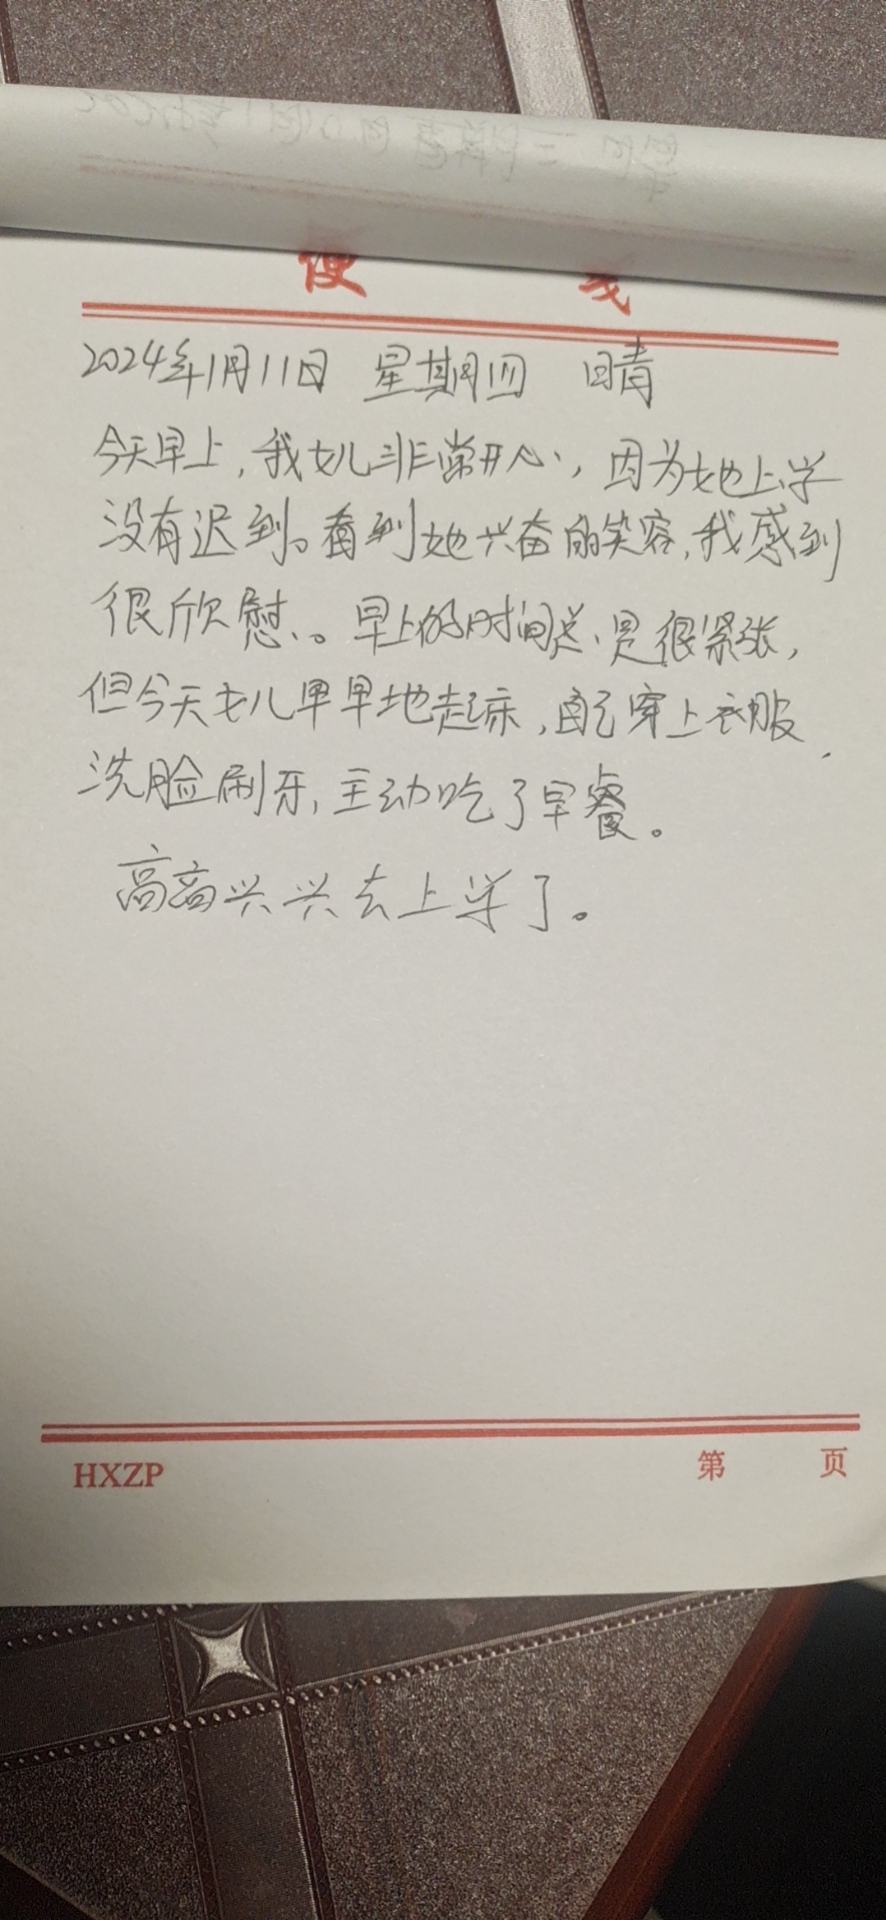 便 笺
2024年1月11日 星期四 晴
今天早上,我女儿非常开心,因为她上学
没有迟到。看到她兴奋的笑容,我感到
很欣慰、。早上的时间总是很紧张,
但今天女儿早早地起床,自己穿上衣服
洗脸刷牙,主动吃了早餐。
高高兴兴去上学了。
HXZP 第 页